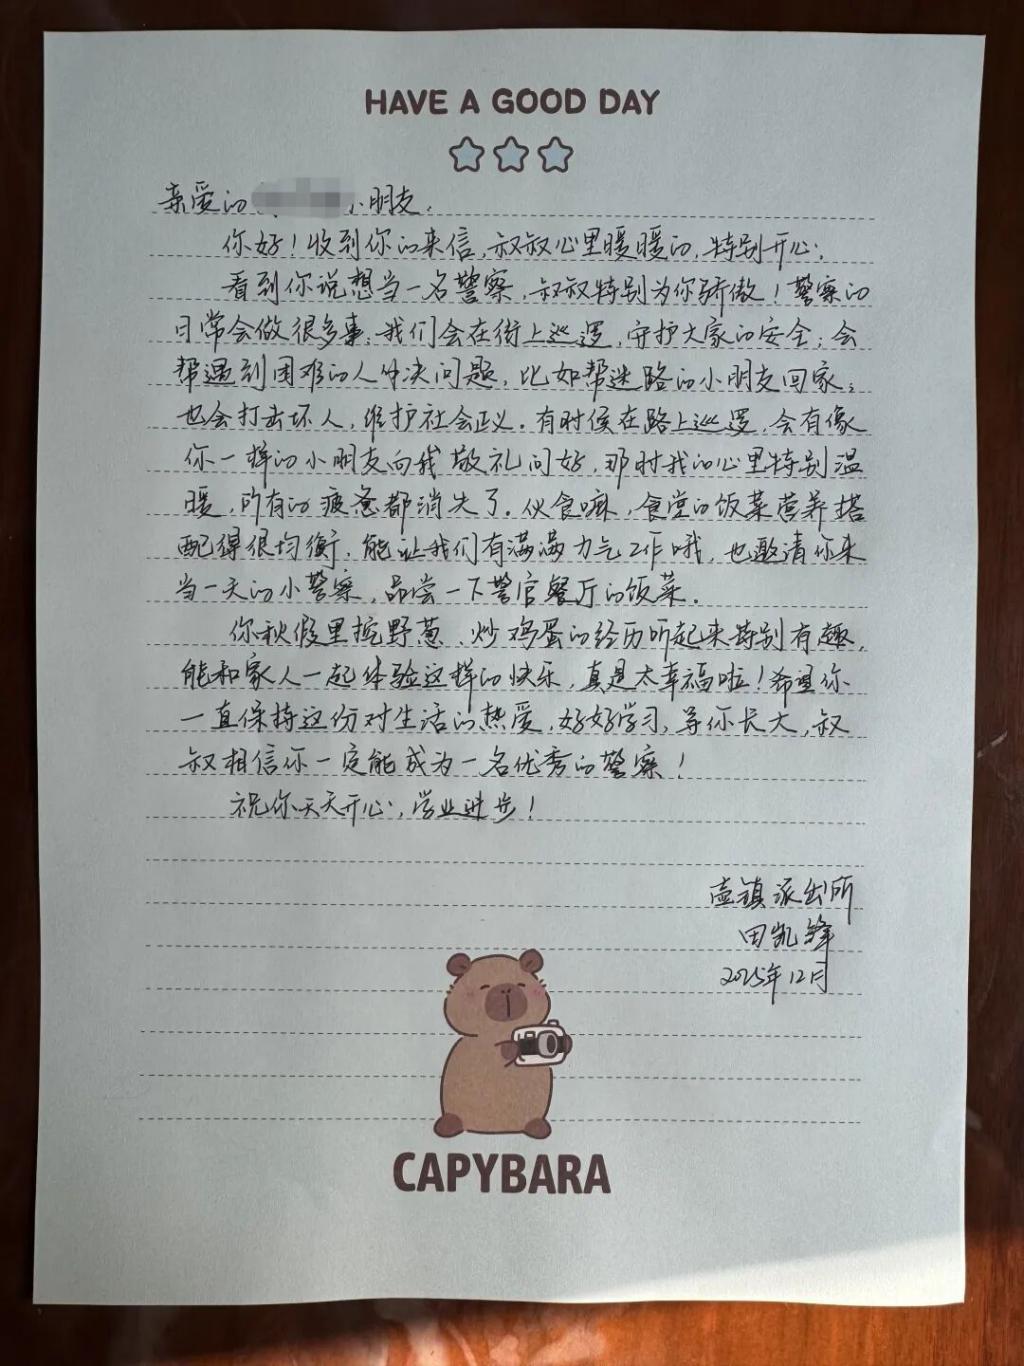 HAVE A GOOD DAY
亲爱的 小朋友,
你好!收到你的来信,叔叔心里暖暖的,特别开心;
看到你说想当一名警察,叔叔特别为你骄傲!警察的
日常会做很多事:我们会在街上巡逻,守护大家的安全;会
帮遇到困难的人解决问题,比如帮迷路的小朋友回家;
也会打击坏人,维护社会正义.有时候在路上巡逻,会有像
你一样的小朋友向我敬礼问好,那时我的心里特别温
暖,所有的疲惫都消失了.伙食嘛,食堂的饭菜营养搭
配得很均衡,能让我们有满满力气工作哦,也邀请你来
当一天的小警察,品尝一下警官餐厅的饭菜.
你秋假里挖野葱、炒鸡蛋的经历听起来特别有趣,
能和家人一起体验这样的快乐,真是太幸福啦!希望你
一直保持这份对生活的热爱,好好学习,等你长大,叔
叔相信你一定能成为一名优秀的警察!
祝你天天开心,学业进步!
镇派出所
田凯锋
2025年12月
CAPYBARA